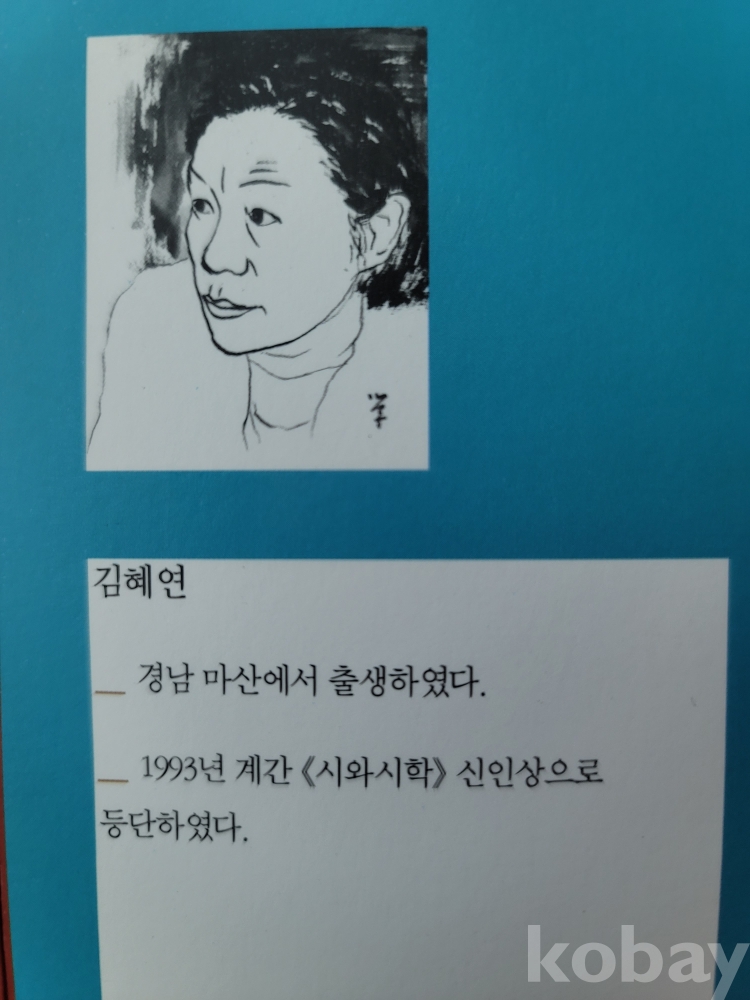 김혜연
_ 경남 마산에서 출생하였다.
_ 1993년 계간 《시와시학》 신인상으로
등단하였다.
kobay